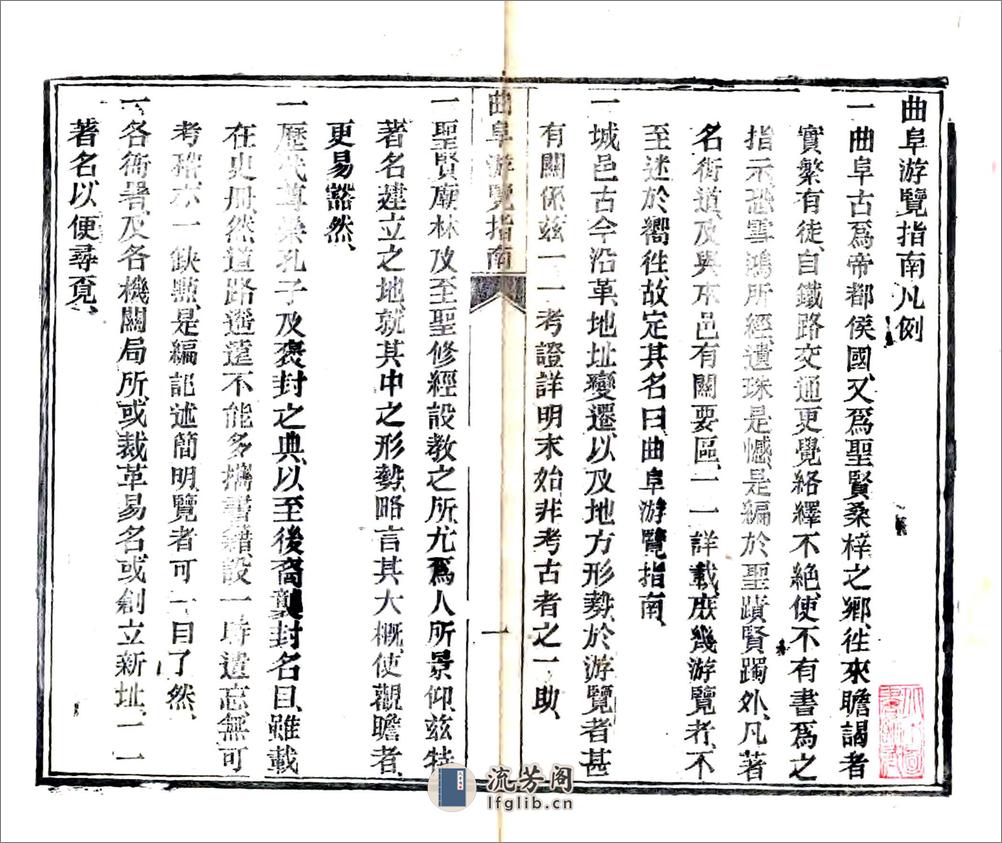 曲阜游覽指南凡例
一曲阜古爲帝都侯國、又爲聖賢桑梓之鄉、往來瞻謁者
實繁有徒、自鐵路交通更覺絡繹不絕、使不有書爲之
指示恐雪鴻所經遺珠是憾、是編於聖蹟賢躅外、凡著
名街道、及與本邑有關要區、一一詳載、庶幾游覽者、不
至迷於嚮往、故定其名曰曲阜游覽指南、
一城邑古今沿革、地址變遷、以及地方形勢、於游覽者甚
有關係、兹一一考證詳明、未始非考古者之一助、
曲阜游覽指南
一
一聖賢廟林及至聖修經設敎之所、尤爲人所景仰、兹特
著名建立之地、就其中之形勢、略言其大概、使觀瞻者、
更易豁然、
一歷代尊崇孔子及褒封之典、以至後裔襲封名目、雖載
在史册、然道路遥遠、不能多攜書籍、設一時遺忘、無可
考稽、亦一缺點、是編記述簡明、覽者可一目了然、
一各衙署、及各機關局所、或裁革易名、或創立新址、一一
著名、以便尋覓、
流芳阁
lfglib.cn